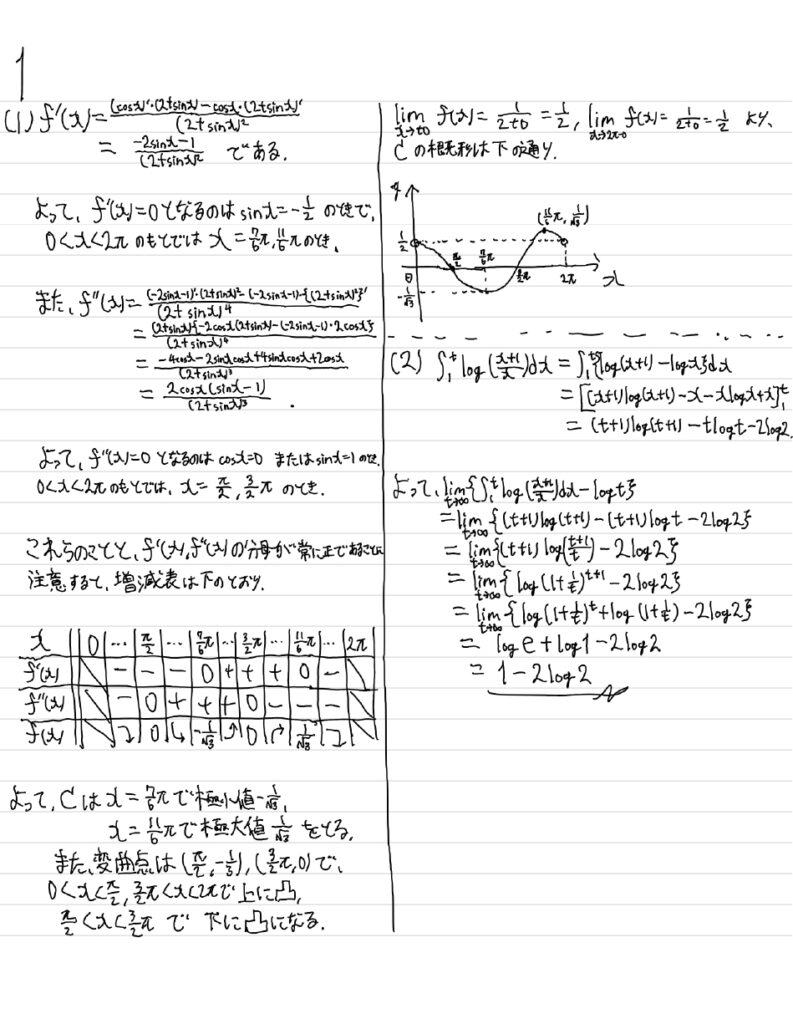 1
(1) f'(x) = \frac{(cosx)'・(2+sinx) - cosx・(2+sinx)'}{(2+sinx)^2}
= \frac{-2sinx-1}{(2+sinx)^2} である.
よって、f'(x)=0となるのは sinx=-\frac{1}{2} のときで、
0<x<2π のもとでは x=\frac{7}{6}π, \frac{11}{6}π のとき.
また、f''(x) = \frac{(-2sinx-1)'・(2+sinx)^2 - (-2sinx-1)・{(2+sinx)^2}'}{(2+sinx)^4}
= \frac{(2+sinx){-2cosx(2+sinx) - (-2sinx-1)・2cosx}}{(2+sinx)^4}
= \frac{-4cosx-2sinxcosx+4sinxcosx+2cosx}{(2+sinx)^3}
= \frac{2cosx(sinx-1)}{(2+sinx)^3} .
よって、f''(x)=0 となるのは cosx=0 または sinx=1 のとき.
0<x<2π のもとでは、x=\frac{π}{2}, \frac{3}{2}π のとき.
これらのことと、f'(x), f''(x) の分母が常に正であることに
注意すると、増減表は下のとおり.
x 0 … \frac{π}{2} … \frac{7}{6}π … \frac{3}{2}π … \frac{11}{6}π … 2π
f'(x) - - - 0 + + + 0 -
f''(x) - 0 + + + 0 - - -
f(x) ⤵ 0 ⤷ -\frac{1}{√3} ⤴ 0 ⤴ \frac{1}{√3} ⤵
よって、C は x=\frac{7}{6}π で極小値-\frac{1}{√3},
x=\frac{11}{6}π で極大値 \frac{1}{√3} をとる.
また、変曲点は (\frac{π}{2}, -\frac{1}{3}), (\frac{3}{2}π, 0) で、
0<x<\frac{π}{2}, \frac{3}{2}π<x<2πで上に凸,
\frac{π}{2}<x<\frac{3}{2}π で 下に凸になる.
\lim_{x→+0} f(x) = \frac{1}{2+0} = \frac{1}{2}, \lim_{x→2π-0} f(x) = \frac{1}{2+0} = \frac{1}{2} より、
C の概形は下の通り.
y
(\frac{11}{6}π, \frac{1}{√3})
\frac{1}{2}
\frac{π}{2} \frac{7}{6}π
0 \frac{3}{2}π 2π x
-\frac{1}{√3}
(2) ∫_1^t log(\frac{x+1}{x})dx = ∫_1^t {log(x+1) - logx}dx
= [(x+1)log(x+1) - x - xlogx + x]_1^t
= (t+1)log(t+1) - tlogt - 2log2
よって、\lim_{t→∞} {∫_1^t log(\frac{x+1}{x})dx - logt}
= \lim_{t→∞} {(t+1)log(t+1) - (t+1)logt - 2log2}
= \lim_{t→∞} {(t+1)log(\frac{t+1}{t}) - 2log2}
= \lim_{t→∞} {log(1+\frac{1}{t})^{t+1} - 2log2}
= \lim_{t→∞} {log(1+\frac{1}{t})^t + log(1+\frac{1}{t}) - 2log2}
= loge + log1 - 2log2
= 1 - 2log2